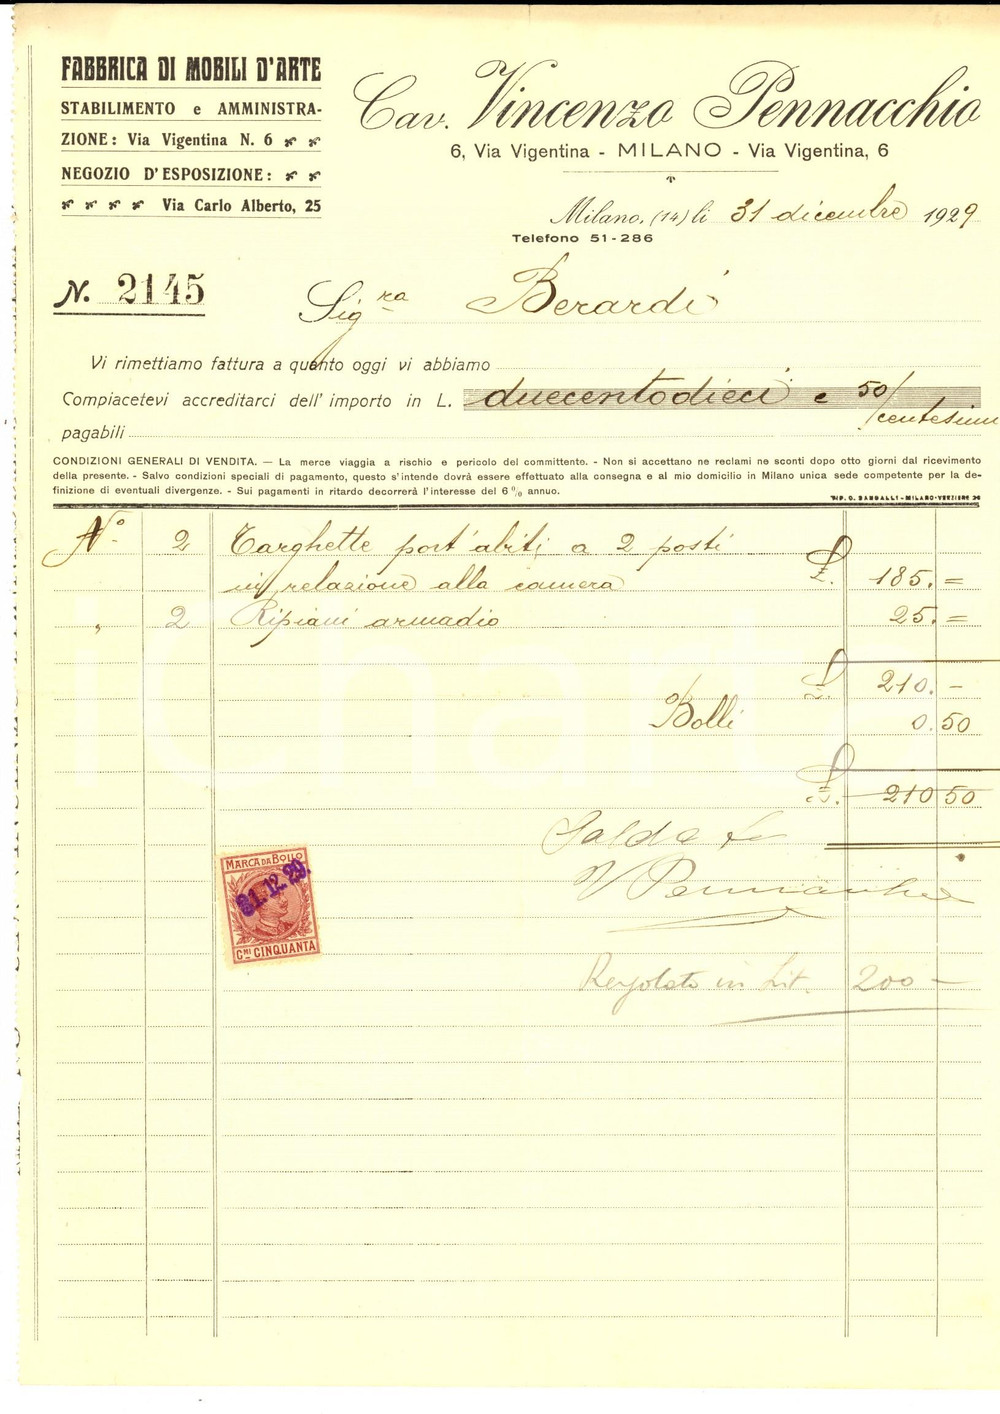 FABBRICA DI MOBILI D'ARTE
STABILIMENTO e AMMINISTRA-
ZIONE: Via Vigentina N. 6
NEGOZIO D'ESPOSIZIONE:
Via Carlo Alberto, 25
Cav. Vincenzo Pennacchio
6, Via Vigentina - MILANO - Via Vigentina, 6
Milano, (14) li 31 dicembre 1929
Telefono 51-286
N. 2145
Sig.ra Berardi
Vi rimettiamo fattura a quanto oggi vi abbiamo
Compiacetevi accreditarci dell'importo in L. duecentodieci e 50/centesimi
pagabili
CONDIZIONI GENERALI DI VENDITA. — La merce viaggia a rischio e pericolo del committente. - Non si accettano ne reclami ne sconti dopo otto giorni dal ricevimento
della presente. - Salvo condizioni speciali di pagamento, questo s'intende dovrà essere effettuato alla consegna e al mio domicilio in Milano unica sede competente per la de-
finizione di eventuali divergenze. - Sui pagamenti in ritardo decorrerà l'interesse del 6% annuo.
TIP. G. BANGALLI - MILANO - VERZIERE
N° 2 Targhette port'abiti a 2 posti
in relazione alla camera £. 185.=
" 2 Ripiani armadio 25.=
£. 210.-
Bolli 0.50
£. 210 50
Saldato
V Pennacchio
MARCA DA BOLLO
31.12.29.
C.MI CINQUANTA
Regolato in Lit. 200 -
iCharta